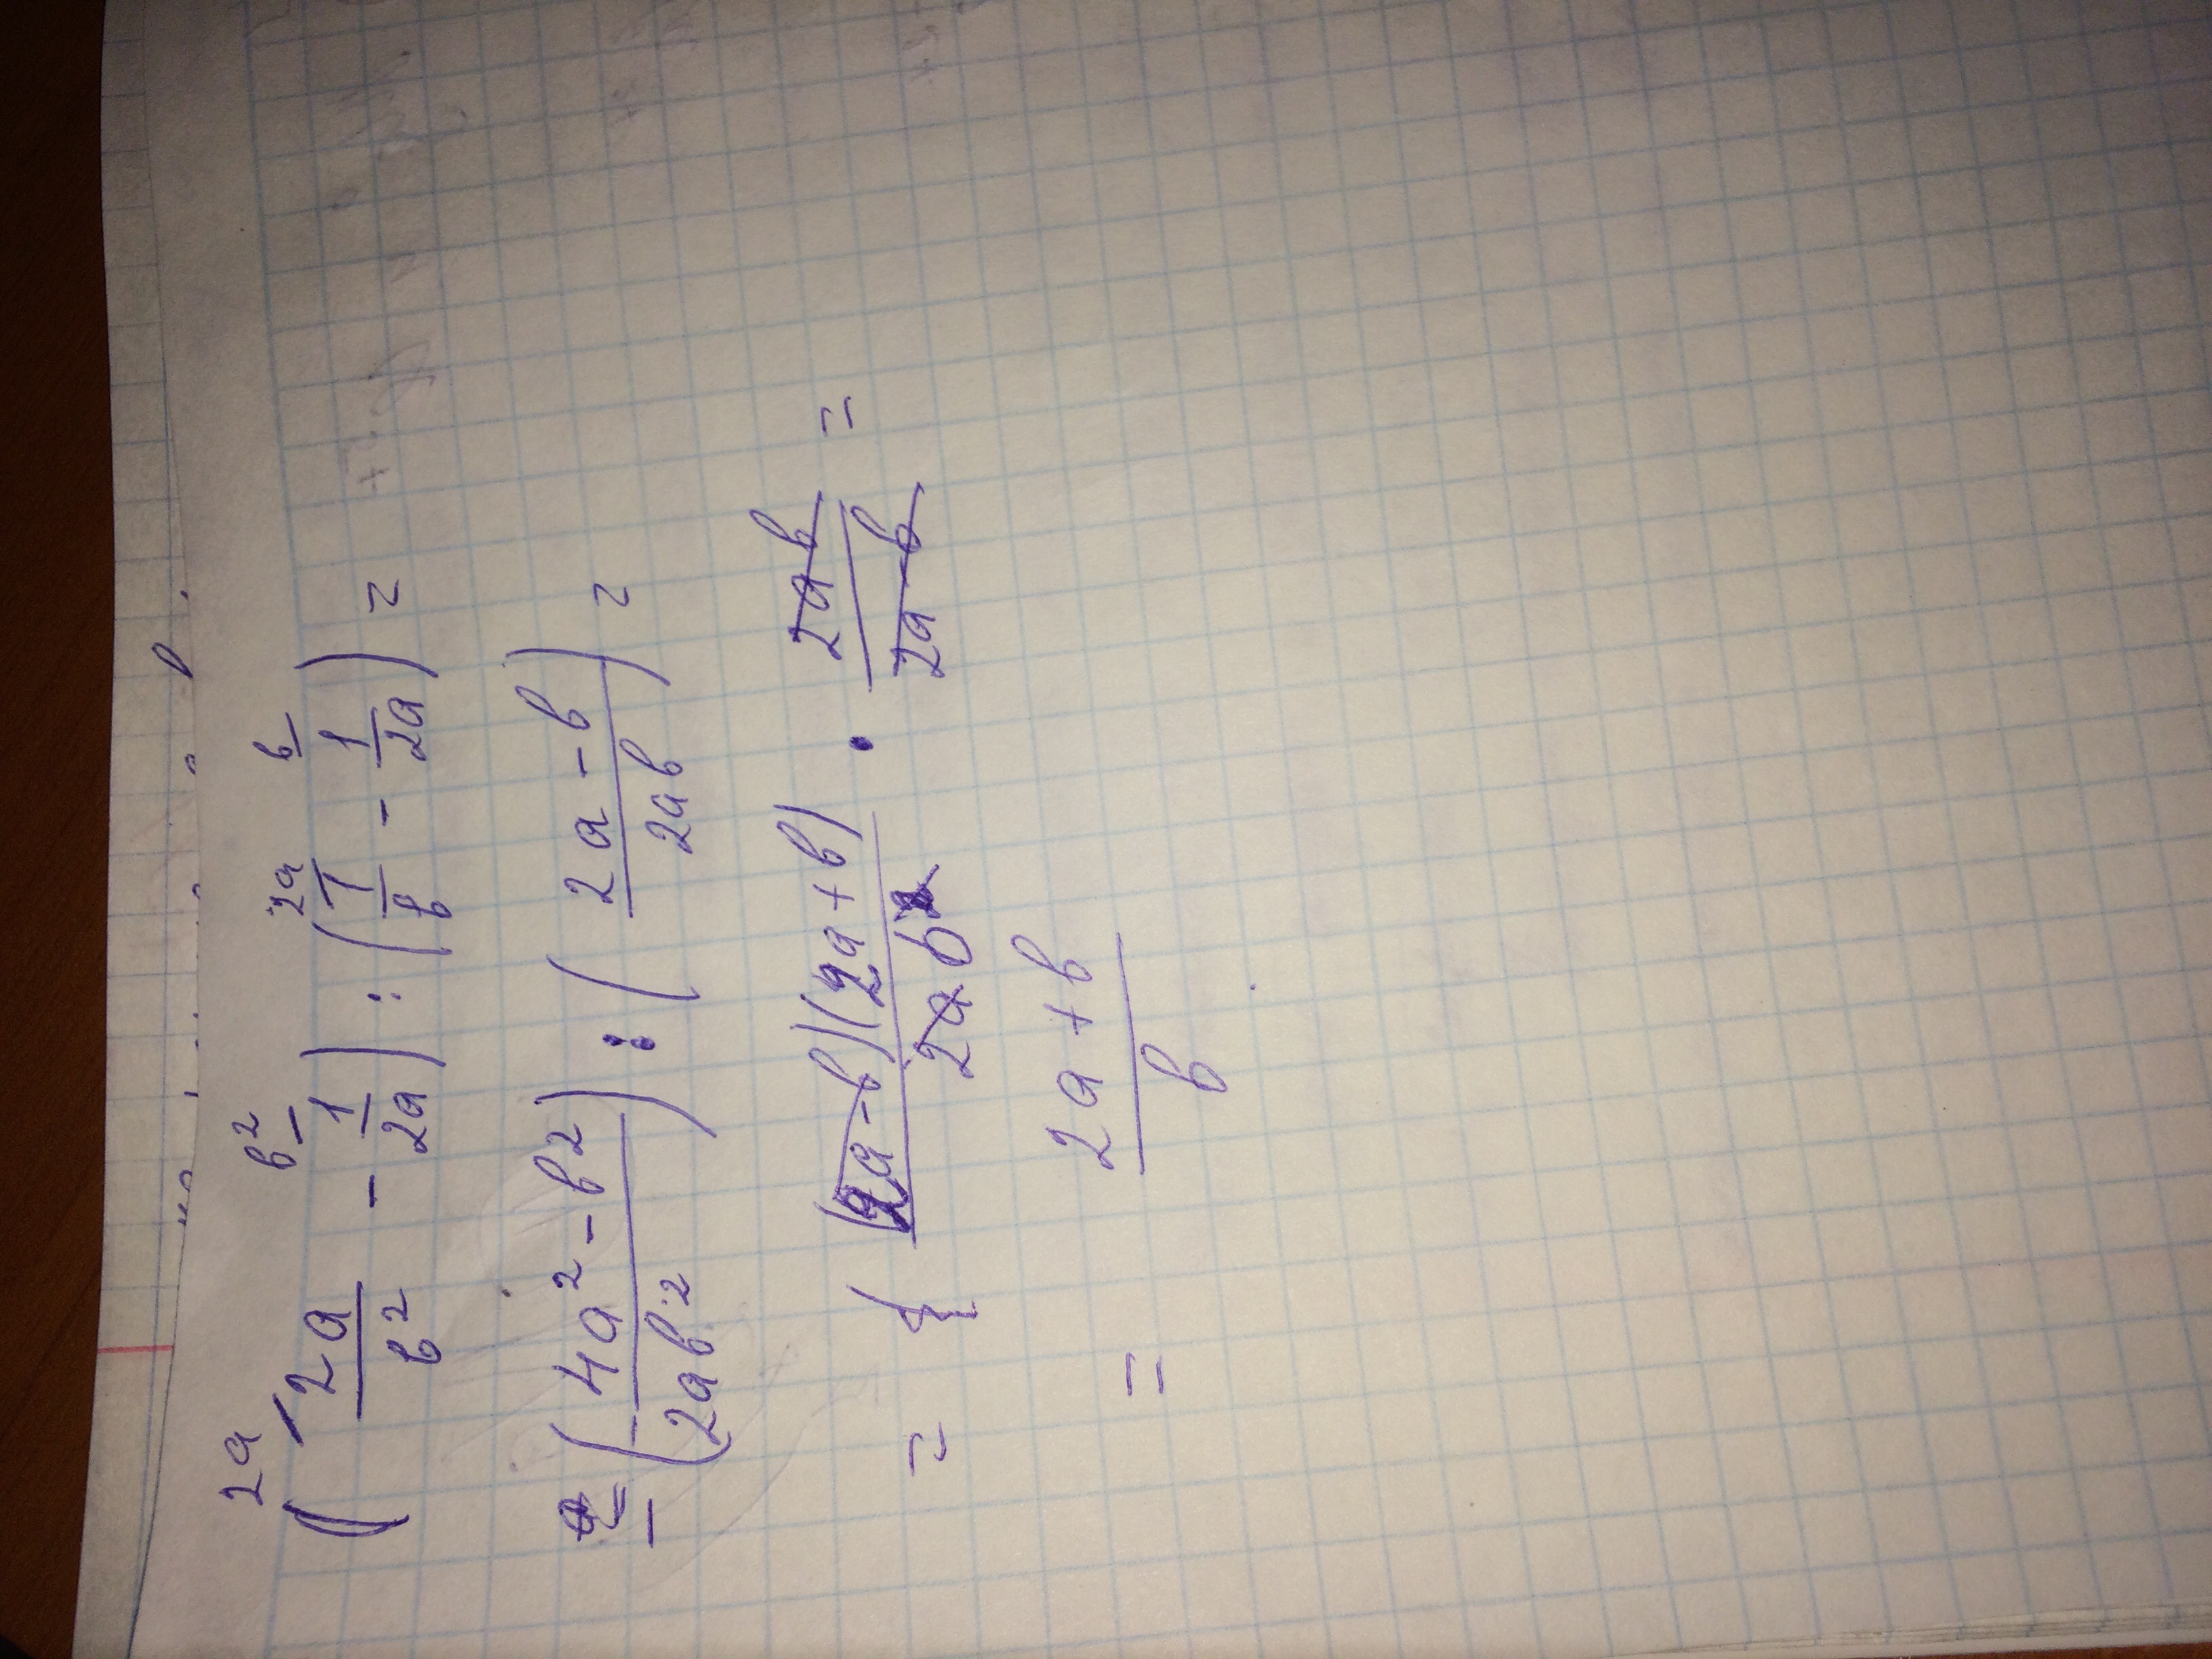 (2a/b² - 1/2a) : (1/b - 1/2a) =
= (4a² - b²/2ab²) : (2a - b/2ab) =
= (2a - b)(2a + b)/2ab² · 2ab/2a - b =
= 2a + b/b